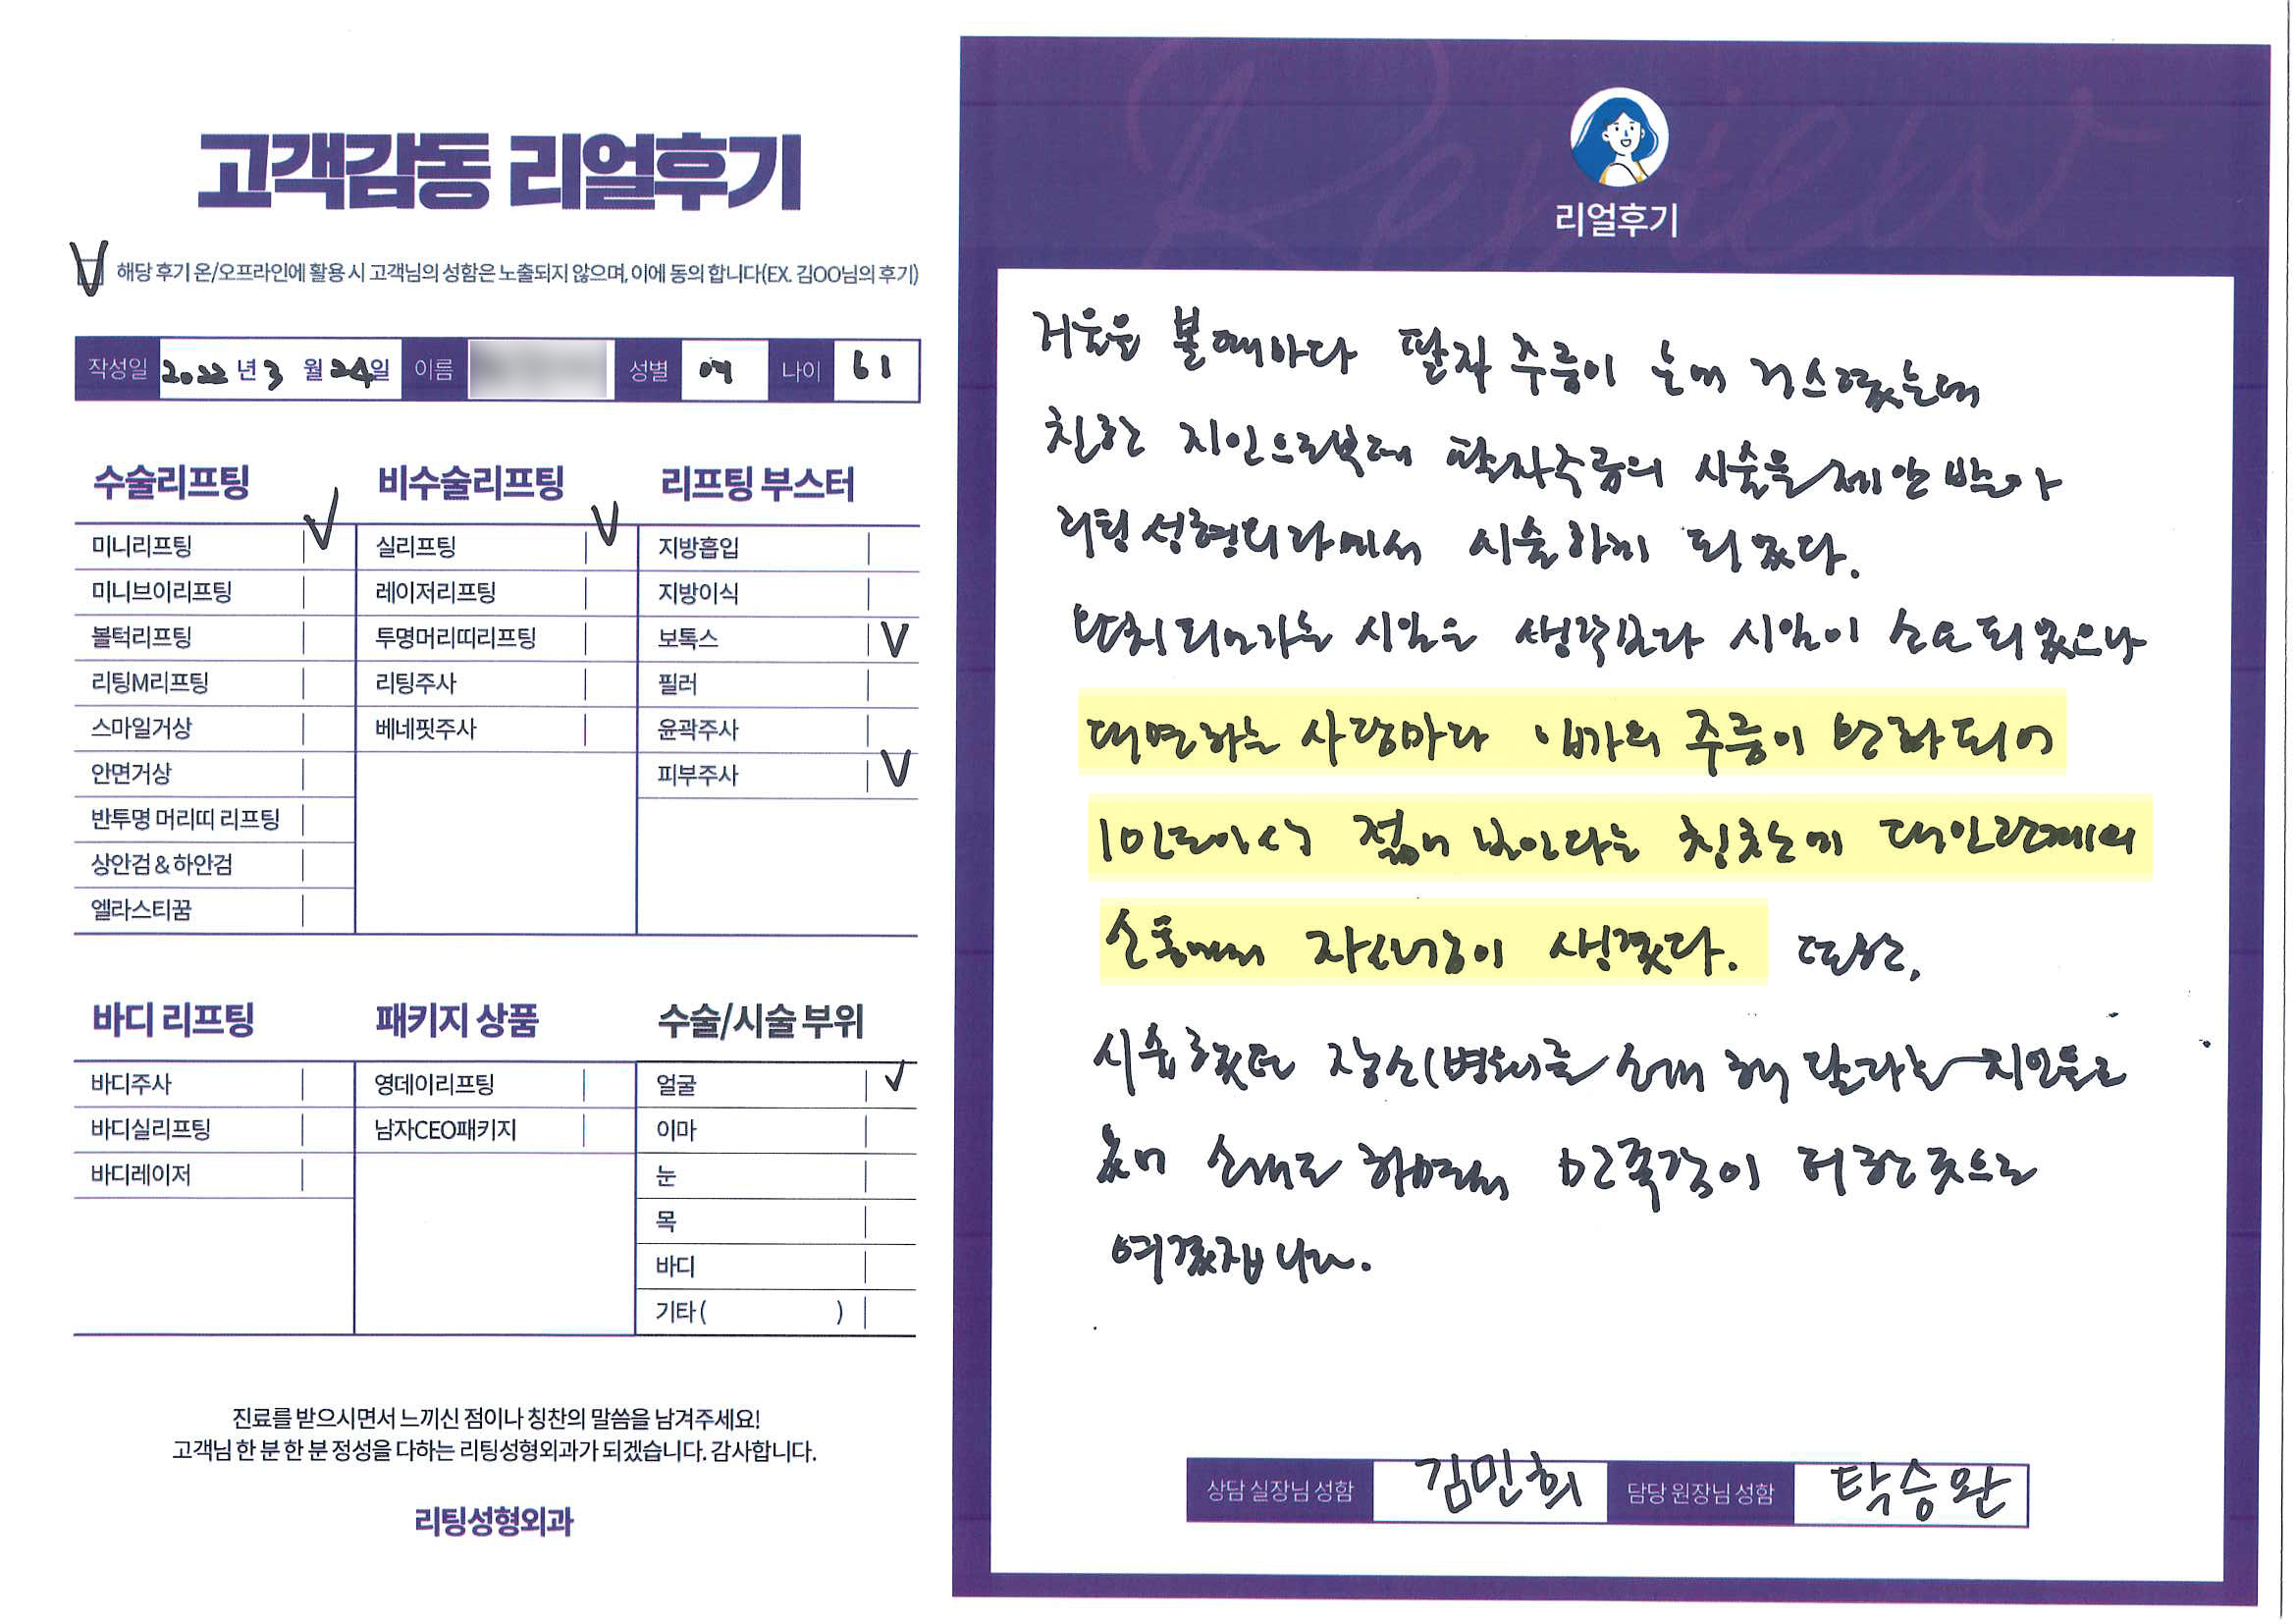 고객감동 리얼후기
해당 후기 온/오프라인에 활용 시 고객님의 성함은 노출되지 않으며, 이에 동의 합니다(EX. 김OO님의 후기)
작성일 2022년 3월 24일 이름 성별 여 나이 61
수술리프팅
미니리프팅 V
미니브이리프팅
볼턱리프팅
리팅M리프팅
스마일거상
안면거상
반투명 머리띠 리프팅
상안검 & 하안검
엘라스티꿈
비수술리프팅
실리프팅 V
레이저리프팅
투명머리띠리프팅
리팅주사
베네핏주사
리프팅 부스터
지방흡입
지방이식
보톡스 V
필러
윤곽주사
피부주사 V
바디 리프팅
바디주사
바디실리프팅
바디레이저
패키지 상품
영데이리프팅
남자CEO패키지
수술/시술 부위
얼굴 V
이마
눈
목
바디
기타 ( )
진료를 받으시면서 느끼신 점이나 칭찬의 말씀을 남겨주세요!
고객님 한 분 한 분 정성을 다하는 리팅성형외과가 되겠습니다. 감사합니다.
리팅성형외과
Review
리얼후기
거울을 볼때마다 팔자 주름이 눈에 거슬렸는데
친한 지인으로부터 팔자주름의 시술을 제안 받아
리팅성형외과에서 시술하게 되었다.
완치되어가는 시일은 생각보다 시일이 소요되었으나
대면하는 사람마다 입가의 주름이 완화되어
10년도이상 젊어 보인다는 칭찬에 대인관계의
소통에의 자신감이 생겼다. 또한,
시술했던 장소(병원)를 소개 해 달라는 지인들도
있어 소개도 하면서 만족감이 더한 것으로
여겨집니다.
상담 실장님 성함 김민희 담당 원장님 성함 탁승완